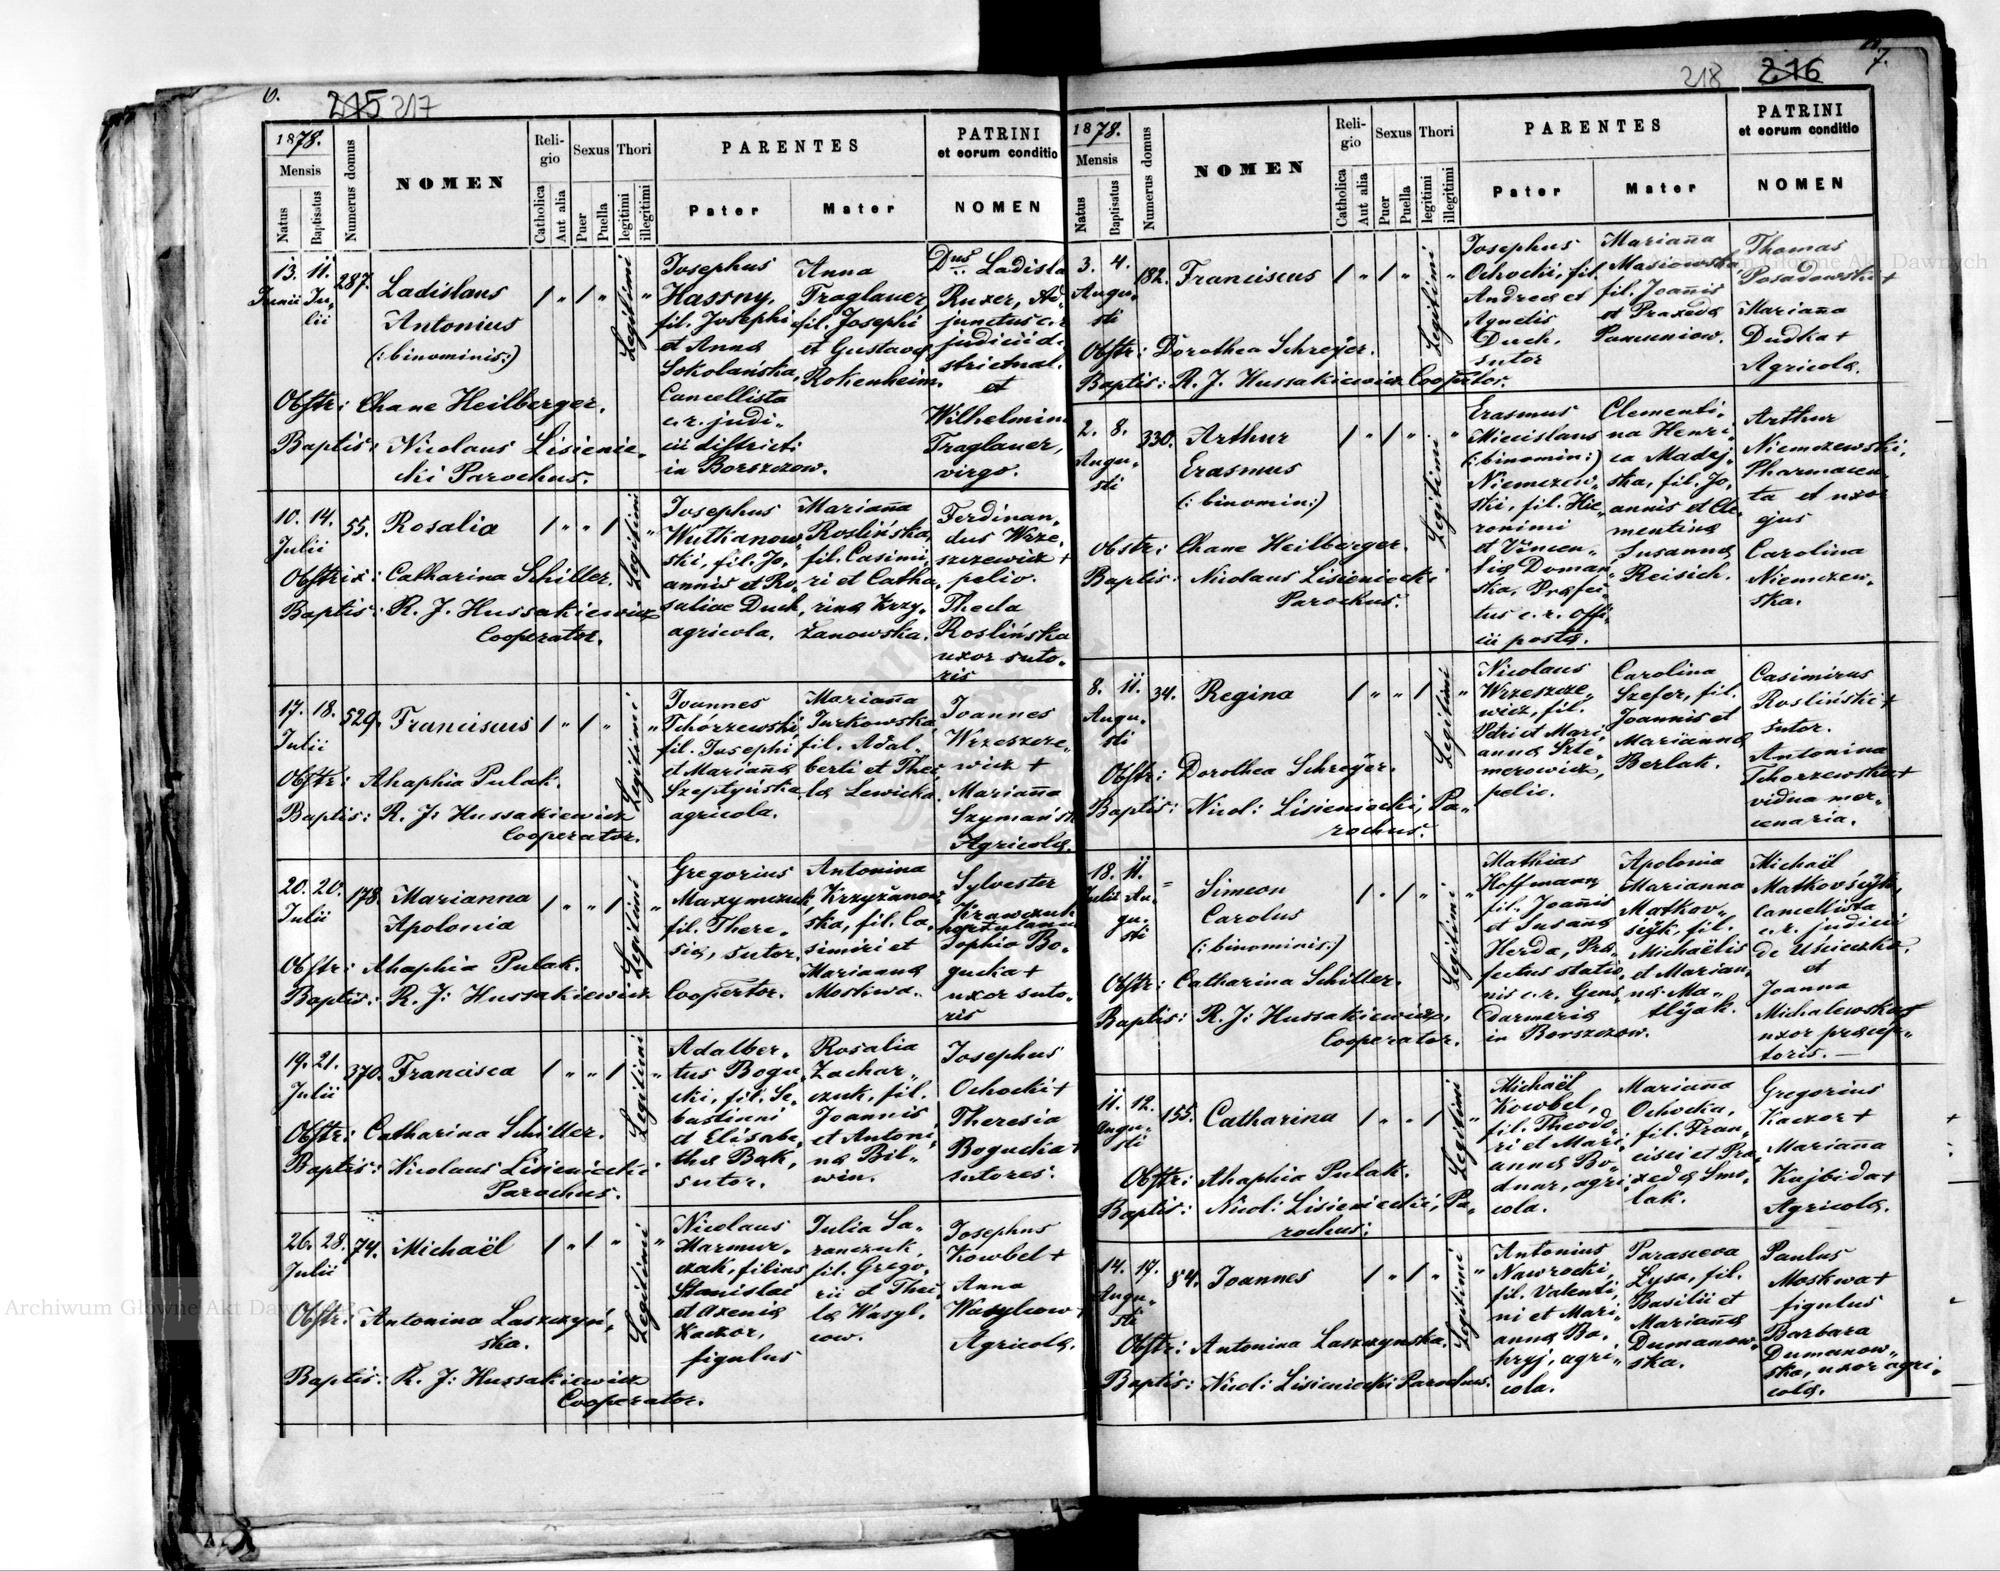 6.
215 217
1878.
Mensis
Natus
Baptisatus
Numerus domus
NOMEN
Reli-
gio
Catholica
Aut alia
Sexus
Puer
Puella
Thori
legitimi
illegitimi
PARENTES
Pater
Mater
PATRINI
et eorum conditio
NOMEN
13. 11. 287.
Junii Ju-
lii
Ladislaus
Antonius
(:binominis:)
Legitimi
Obstr: Chane Heilberger.
Baptis: Nicolaus Lisienie-
cki Parochus.
Josephus
Hassny,
fil. Josephi
et Anna
Sokolańska,
Cancellista
c.r. judi-
cii districti
in Borszczow.
Anna
Traglauer,
fil. Josephi
et Gustava
Rokenheim.
Dnus Ladisla
Ruxer, Ad-
junctus c.r
judicii di-
strictual.
et
Wilhelmina
Traglauer,
virgo.
10. 14. 55.
Julii
Rosalia
Legitimi
Obstrix: Catharina Schiller.
Baptis: R. J. Hussakiewicz
Cooperator.
Josephus
Wutkanow-
ski, fil. Jo-
annis et Ro-
saliae Duch,
agricola.
Marianna
Roslińska,
fil. Casimi-
ri et Catha-
rina Krzy-
żanowska.
Ferdinan-
dus Wrze-
szczewicz +
pelio.
Thecla
Roslińska
uxor suto-
ris
17. 18. 529.
Julii
Franciscus
Legitimi
Obstr: Ahaphia Pulak.
Baptis: R. J: Hussakiewicz
Cooperator.
Joannes
Tchórzewski,
fil. Josephi
et Marianna
Szeptyńska
agricola.
Marianna
Jurkowska,
fil. Adal-
berti et Thec-
la Lewicka.
Joannes
Wrzeszcze-
wicz +
Marianna
Szymańsk
Agricola.
20. 20. 178.
Julii
Marianna
Apolonia
Legitimi
Obstr: Ahaphia Pulak.
Baptis: R. J: Hussakiewicz Coopertor.
Gregorius
Maxymczuk,
fil. There-
sia, sutor.
Antonina
Krzyżanow-
ska, fil. Ca-
simiri et
Marianna
Moskwa.
Sylvester
Krawczuk
Sophia Bo-
gucka +
uxor suto-
ris
19. 21. 370.
Julii
Francisca
Legitimi
Obstr: Catharina Schiller.
Baptis: Nicolaus Lisieniecki
Parochus.
Adalber-
tus Bogu-
cki, fil. Se-
bastiani
et Elisabe-
tha Bąk,
sutor.
Rosalia
Zachar-
czuk, fil.
Joannis
et Antoni-
na Bil-
win.
Josephus
Ochocki +
Theresia
Bogucka +
sutores.
26. 28. 74.
Julii
Michaël
Legitimi
Obstr: Antonina Laszczyń-
ska.
Baptis: R. J: Hussakiewicz
Cooperator.
Nicolaus
Marmur-
czak, filius
Stanislai
et Axenia
Kaczor,
figulus
Julia Sa-
ranczuk,
fil. Grego-
rii et Thec-
la Wasyl-
cow.
Josephus
Kowbel +
Anna
Wasylcow +
Agricola.
218 216
7.
1878.
Mensis
Natus
Baptisatus
Numerus domus
NOMEN
Reli-
gio
Catholica
Aut alia
Sexus
Puer
Puella
Thori
legitimi
illegitimi
PARENTES
Pater
Mater
PATRINI
et eorum conditio
NOMEN
3. 4. 182.
Augu-
sti
Franciscus
Legitimi
Obstr: Dorothea Schreÿer.
Baptis: R. J. Hussakiewicz Cooptor.
Josephus
Ochocki, fil.
Andrea et
Agnetis
Duch,
sutor
Marianna
Masiowska
fil. Joannis
et Praxeda
Panuniow.
Thomas
Posadowski +
Marianna
Dudka +
Agricola.
2. 8. 330.
Augu-
sti
Arthur
Erasmus
(:binomin:)
Legitimi
Obstr: Chane Heilberger.
Baptis: Nicolaus Lisieniecki
Parochus.
Erasmus
Miecislaus
(:binomin:)
Niemczew-
ski, fil. Hie-
ronimi
et Vincen-
tia Doman-
ska, Præfec-
tus c.r. Offi-
cii posta.
Clementi-
na Henri-
ca Madej-
ska, fil. Jo-
annis et Cle-
mentina
Susanna
Reisich.
Arthur
Niemczewski,
Pharmaceu-
ta et uxor
ejus
Carolina
Niemczew-
ska.
8. 11. 34.
Augu-
sti
Regina
Legitimi
Obstr: Dorothea Schreÿer.
Baptis: Nicol: Lisieniecki, Pa-
rochus.
Nicolaus
Wrzeszcze-
wicz, fil.
Petri et Mari-
anna Szte-
merowicz,
pelio.
Carolina
Szefer, fil.
Joannis et
Marianna
Berlak.
Casimirus
Rosliński +
sutor.
Antonina
Tchorzewska +
vidua mer-
cenaria.
18. 11. =
Julii Au-
gu-
sti
Simeon
Carolus
(:binominis:)
Legitimi
Obstr: Catharina Schiller.
Baptis: R. J: Hussakiewicz,
Cooperator.
Mathias
Hoffmann,
fil. Joannis
et Susanna
Herda, Præ-
fectus statio-
nis c.r. Gens-
darmeria
in Borszczow.
Apolonia
Marianna
Matkow-
siÿk, fil.
Michaëlis
et Marian-
na Ma-
tiÿak.
Michaël
Matkowsiÿk,
Cancellista
c.r. judicii
de Uscieczko.
et
Joanna
Michalewska +
uxor præcep-
toris.
11. 12. 155.
Augu-
sti
Catharina
Legitimi
Obstr: Ahaphia Pulak.
Baptis: Nicol: Lisieniecki, Pa-
rochus.
Michaël
Kowbel,
fil. Theodo-
ri et Mari-
anna Bo-
dnar, agri-
cola.
Marianna
Ochocka,
fil. Fran-
cisci et Pra-
xeda Smo-
lak.
Gregorius
Kaczor +
Marianna
Kajbida +
Agricola.
14. 17. 84.
Augu-
sti
Joannes
Legitimi
Obstr: Antonina Laszczynska.
Baptis: Nicol: Lisieniecki Parochus.
Antonius
Nawrocki,
fil. Valenti-
ni et Mari-
anna Ba-
hryj, agri-
cola.
Parasceva
Lysa, fil.
Basilii et
Marianna
Dumanow-
ska.
Paulus
Moskwa +
figulus
Barbara
Dumanow-
ska, uxor agri-
cola.
Archiwum Główne Akt Dawnych
Archiwum Główne Akt Dawnych